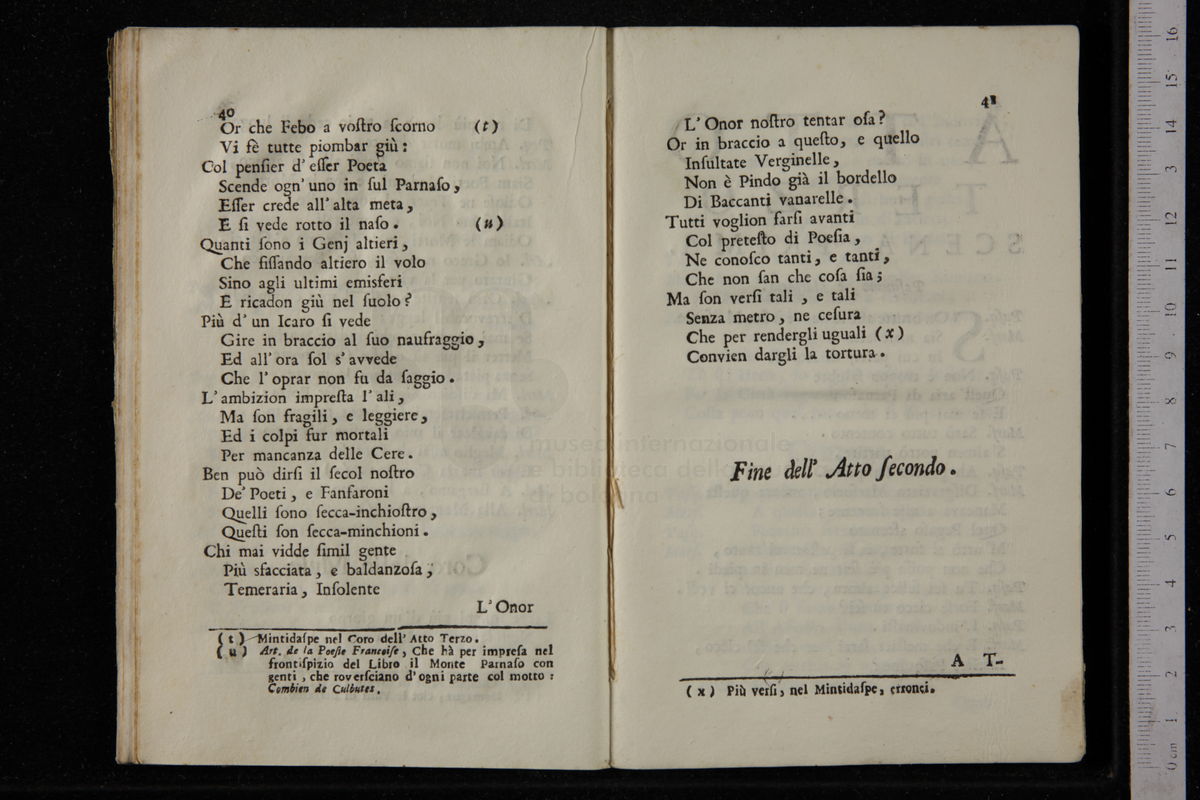 40
Or che Febo a voſtro ſcorno (t)
Vi fè tutte piombar giù:
Col penſier d'eſſer Poeta
Scende ogn'uno in ſul Parnaſo,
Eſſer crede all'alta meta,
E ſi vede rotto il naſo. (u)
Quanti ſono i Genj altieri,
Che fiſſando altiero il volo
Sino agli ultimi emisferi
E ricadon giù nel ſuolo?
Più d'un Icaro ſi vede
Gire in braccio al ſuo naufraggio,
Ed all'ora ſol s'avvede
Che l'oprar non fu da ſaggio.
L'ambizion impreſta l'ali,
Ma ſon fragili, e leggiere,
Ed i colpi fur mortali
Per mancanza delle Cere.
Ben può dirſi il ſecol noſtro
De' Poeti, e Fanfaroni
Quelli ſono ſecca-inchioſtro,
Queſti ſon ſecca-minchioni.
Chi mai vidde ſimil gente
Più sfacciata, e baldanzoſa;
Temeraria, Inſolente
L'Onor
(t) Mintidaſpe nel Coro dell'Atto Terzo.
(u) Art. de la Poeſie Francoiſe, Che hà per impreſa nel
frontiſpizio del Libro il Monte Parnaſo con
genti, che roverſciano d'ogni parte col motto:
Combien de Culbutes.
41
L'Onor noſtro tentar oſa?
Or in braccio a queſto, e quello
Inſultate Verginelle,
Non è Pindo già il bordello
Di Baccanti vanarelle.
Tutti voglion farſi avanti
Col preteſto di Poeſia,
Ne conoſco tanti, e tanti,
Che non ſan che coſa ſia;
Ma ſon verſi tali, e tali
Senza metro, ne ceſura
Che per rendergli uguali (x)
Convien dargli la tortura.
Fine dell' Atto ſecondo.
A T-
(x) Più verſi, nel Mintidaſpe, erronei.
museo internazionale
e biblioteca della musica
di bologna
0 cm 1 2 3 4 5 6 7 8 9 10 11 12 13 14 15 16